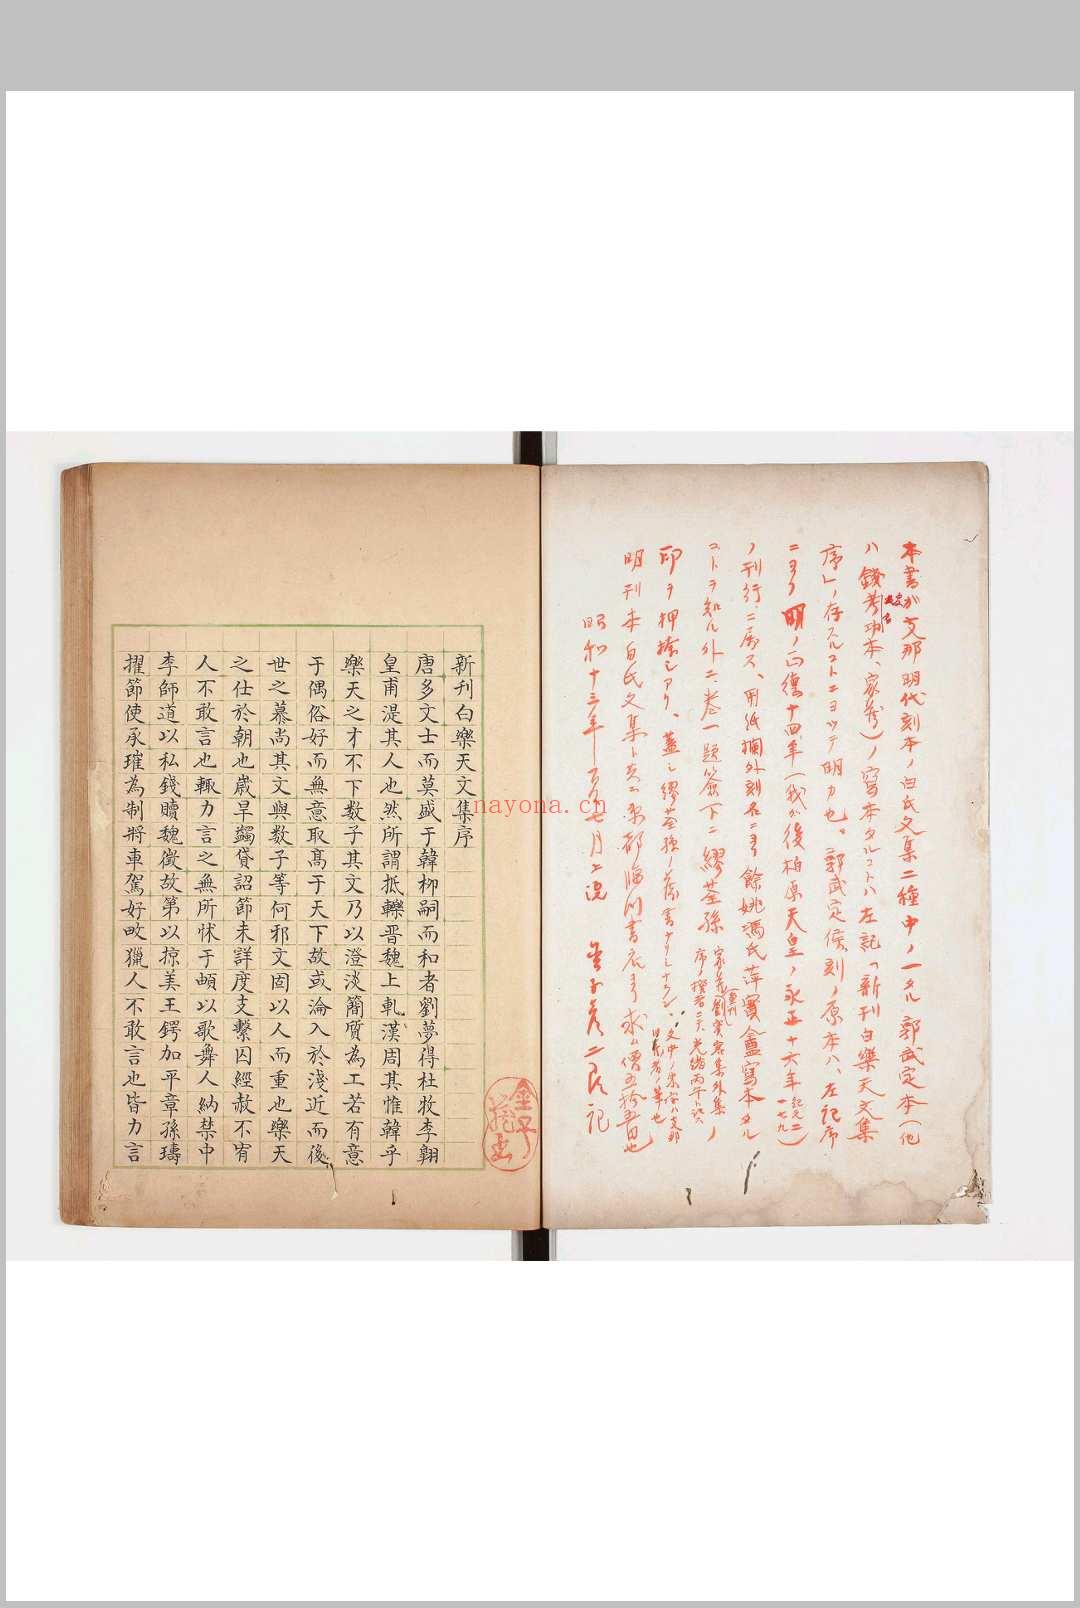 本書ガ支那明代刻本ノ白氏文集二種中ノ一タル郭武定本(他
ハ錢考功本、家蔵)ノ寫本タルコトハ左記「新刊白樂天文集
序」ノ存スルコトニヨツテ明カ也。郭武定侯刻ノ原本ハ、左記序
ニヨリ明ノ正德十四年(我が後柏原天皇ノ永正十六年 紀元二一七九)
ノ刊行ニ屬ス、用紙欄外刻名ニヨリ餘姚馮氏萍實盦寫本タル
コトヲ知ル外ニ、卷一題簽下ニ繆荃孫
印ヲ押捺シアリ、蓋シ繆荃孫ノ舊書
明刊本白氏文集ト共ニ京都臨川書店ヨリ求ム
昭和十三年 七月上浣 金子彦二郎記
新刊白樂天文集序
唐多文士而莫盛于韓柳嗣而和者劉夢得杜牧李翱
皇甫湜其人也然所謂抵轢晋魏上軋漢周其惟韓乎
樂天之才不下数子其文乃以澄淡簡質為工若有意
于偶俗好而無意取髙于天下故或淪入於淺近而後
世之慕尚其文與数子等何邪文固以人而重也樂天
之仕於朝也嵗旱蠲貸詔節未詳度支繫囚經赦不宥
人不敢言也輒力言之無所怵于頔以歌舞人納禁中
李師道以私錢贖魏徵故第以掠美王鍔加平章孫璹
擢節使承璀為制將車駕好畋獵人不敢言也皆力言
nayona.cn